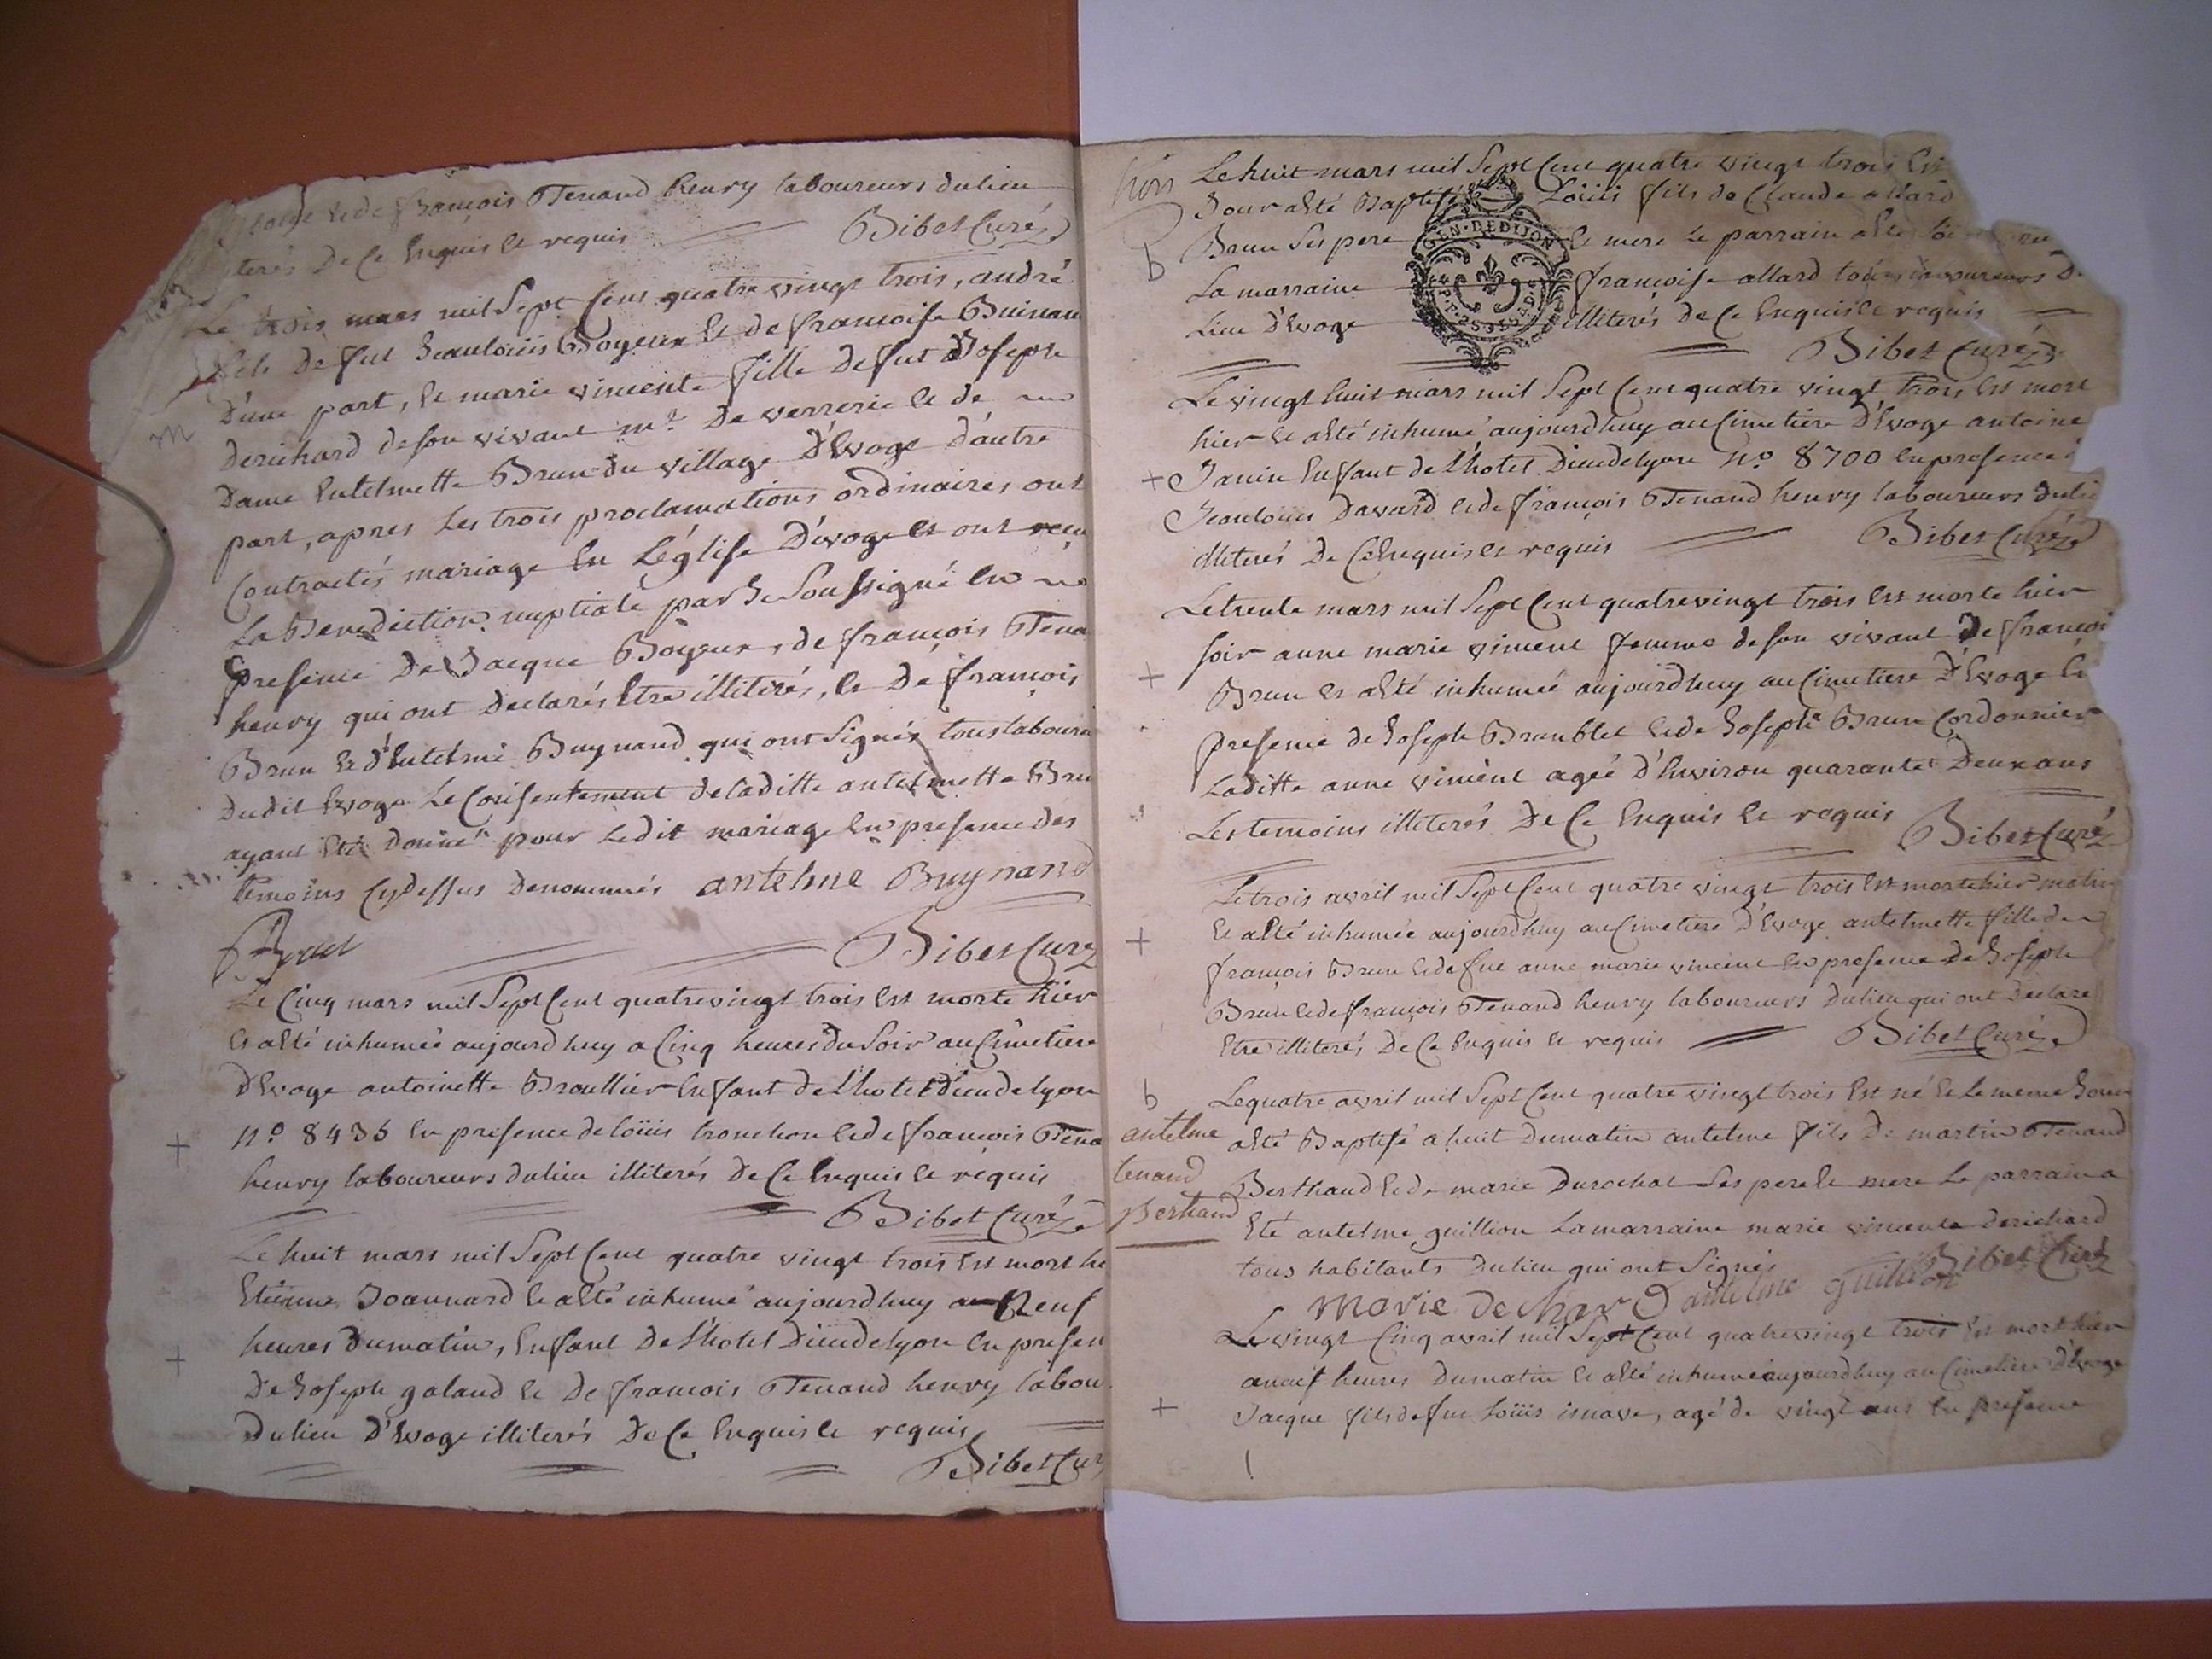 et de françois Tenand henry laboureurs du lieu
De Ce Enquis et requis Bibet Curé
Le trois mars mil Sept Cent quatre vingt trois, andré
fils De fut Jeanlouiis Boyeux et de francoise Buinan
D'une part, et marie vincente fille de fut Joseph
Derichard de son vivant mr De verrerie et de
Dame Entelmette Brun du village D'Evoge d'autre
part, apres les trois proclamations ordinaires ont
Contractés mariage En L'église D'évoge et ont reçu
La Benediction nuptiale par Je Soussigné En
presence De Jacque Boyeux, de françois Tena
henry qui ont Declarés Etre illiterés, et De françois
Brun et d'Entelme Buynand qui ont Signés tous laboure
Dudit Evoge Le Consentement de laditte antelmette Bru
ayant Eté Donné pour Ledit mariage En presence des
temoins Cydessus Denommés antelme Buynand
Brun Bibet Curé
Le Cinq mars mil Sept Cent quatrevingt trois Est morte hier
Et a Eté inhumée aujourdhuy a Cinq heures du Soir au Cimetiere
D'Evoge antoinette Broullier Enfant de L'hotel dieu de lyon
+ n.o 8435 En presence de loüis tronchon et de françois Tena
henry laboureurs du lieu illiterés De Ce Enquis et requis
Bibet Curé
Le huit mars mil Sept Cent quatre vingt trois Est mort hi
Etienne Joannard et a Eté inhumé aujourdhuy a Neuf
heures Dumatin, Enfant De L'hotel Dieu de lyon En presen
+ De Joseph galand et De françois Tenand henry labou
Du lieu D'Evoge illiterés De Ce Enquis et requis
Bibet Cur
Le huit mars mil Sept Cent quatre vingt trois Est
Jour a Eté Baptisé Loüis fils de Claude allard
b Brun Ses pere et mere Le parrain a Eté
La marraine françoise allard tous laboureurs D
GEN. DE DIJON
Lieu D'Evoge illiterés De Ce Enquis et requis
Bibet Curé
Le vingt huit mars mil Sept Cent quatre vingt trois Est mort
hier et a Eté inhumé aujourdhuy au Cimetiere D'Evoge antoine
+ Janin Enfant de L'hotel Dieu de lyon N.o 8700 En presence
Jeanlouis Davard et de françois Tenand henry laboureurs dulie
illiterés De Ce Enquis et requis Bibet Curé
Le trente mars mil Sept Cent quatrevingt trois Est morte hier
soir anne marie vincent femme de son vivant De françoi
+ Brun et a Eté inhumée aujourdhuy au Cimetiere D'Evoge En
presence de Joseph Brunblet et de Joseph Brun Cordonnier
Laditte anne vincent agée d'Environ quarante Deux ans
Les temoins illiterés De Ce Enquis et requis Bibet Curé
Le trois avril mil Sept Cent quatre vingt trois Est morte hier matin
+ Et a Eté inhumée aujourdhuy au Cimetiere D'Evoge antelmette fille de
françois Brun et de fue anne marie vincent En presence De Joseph
Brun et de françois Tenand henry laboureurs Dulieu qui ont Declaré
Etre illiterés De Ce Enquis et requis Bibet Curé
b Le quatre avril mil Sept Cent quatre vingt trois Est né et Le meme Jour
antelme a Eté Baptisé a huit Dumatin antelme fils De martin Tenand
tenand Berthaud et de marie Durochat Ses pere et mere Le parrain a
Berthaud Eté antelme guillion La marraine marie vincente derichard
tous habitants Dulieu qui ont Signés Bibet Curé
Marie dechard antelme guillion
Le vingt Cinq avril mil Sept Cent quatrevingt trois Est mort hier
a neuf heures Dumatin et a Eté inhumé aujourdhuy au Cimetiere D'Evoge
+ Jacque fils de fue Loüis isnave, agé de vingt ans En presence